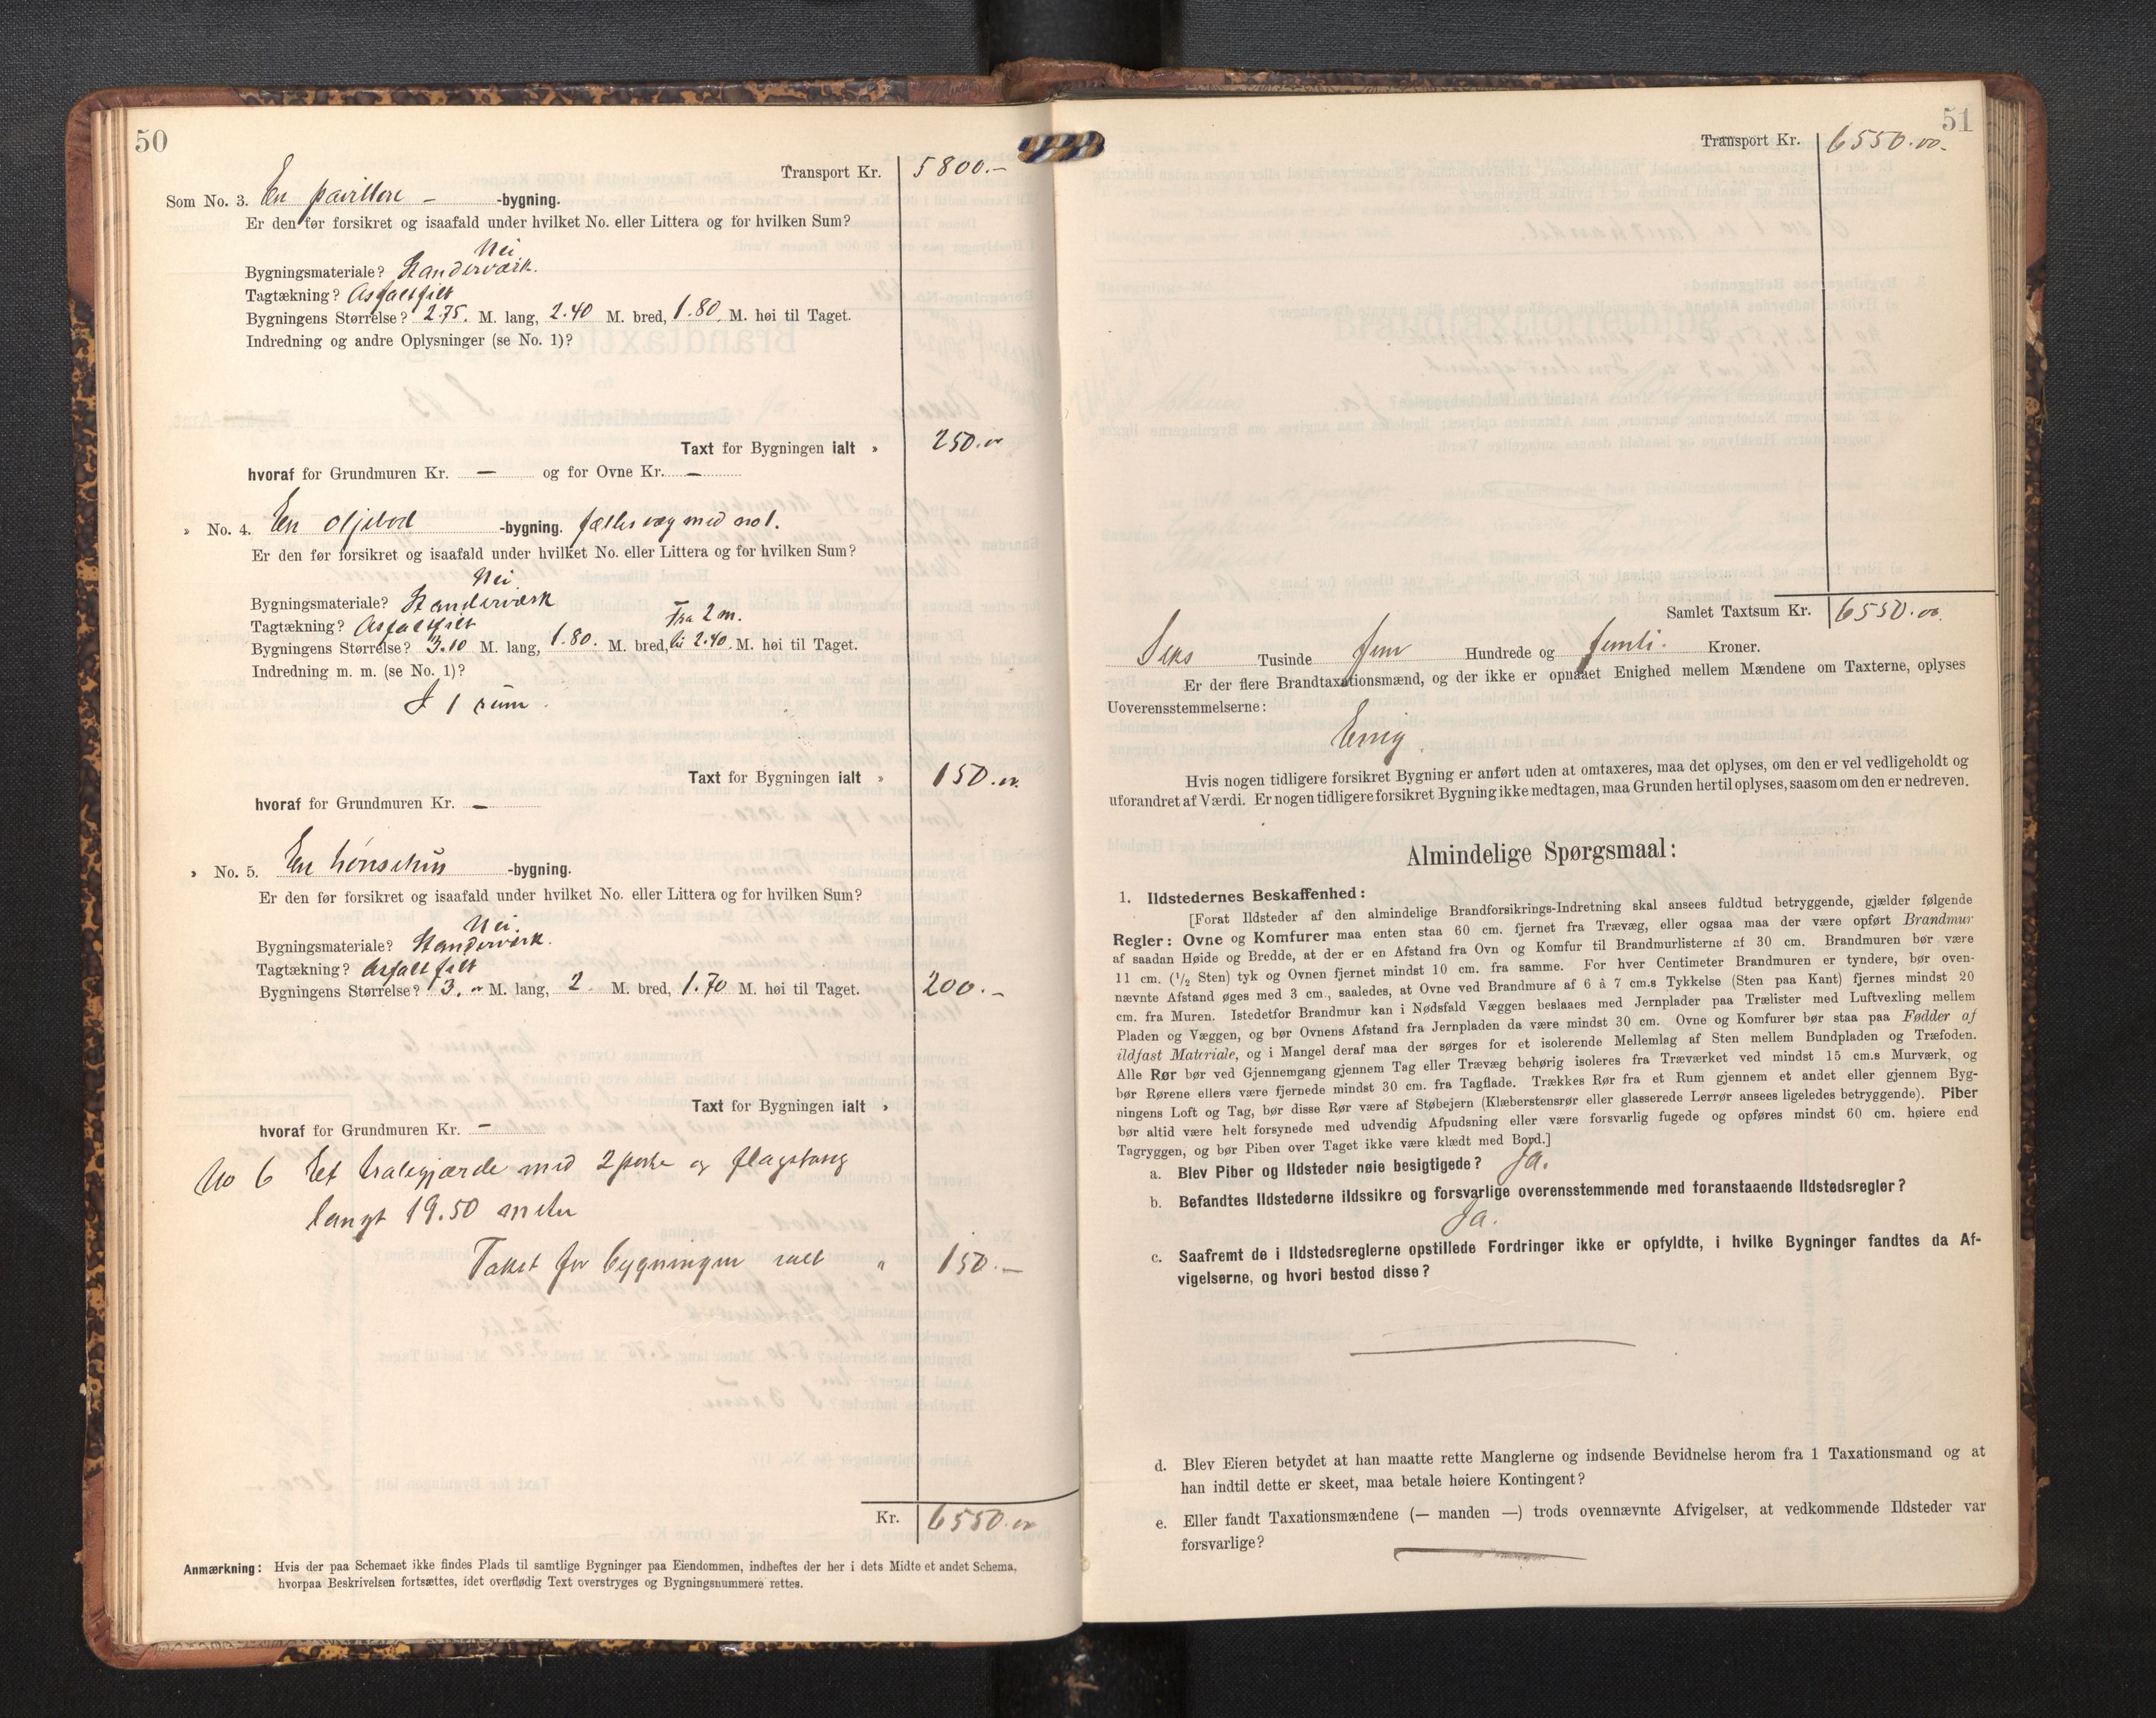 50
Transport Kr. 5800.-
Som No. 3. En pavillon - -bygning.
Er den før forsikret og isaafald under hvilket No. eller Littera og for hvilken Sum?
Nei.
Bygningsmateriale? Standerværk.
Tagtækning? Asfaltfilt
Bygningens Størrelse? 2.75. M. lang, 2.40 M. bred, 1.80. M. høi til Taget.
Indredning og andre Oplysninger (se No. 1)?
Taxt for Bygningen ialt » 250.00
hvoraf for Grundmuren Kr. — og for Ovne Kr. —
» No. 4. En oljebod -bygning. fælles væg med no 1.
Er den før forsikret og isaafald under hvilket No. eller Littera og for hvilken Sum?
Nei.
Bygningsmateriale? Standerværk
Tagtækning? Asfaltfilt Fra 2 m.
Bygningens Størrelse? 3.10 M. lang, 1.80. M. bred, til 2.40. M. høi til Taget.
Indredning m. m. (se No. 1)?
I 1 rum.
Taxt for Bygningen ialt » 150.00.
hvoraf for Grundmuren Kr. —
» No. 5. En hønsehus -bygning.
Er den før forsikret og isaafald under hvilket No. eller Littera og for hvilken Sum?
Nei.
Bygningsmateriale? Standerværk.
Tagtækning? Asfaltfilt
Bygningens Størrelse? 3. " M. lang, 2. M. bred, 1.70 M. høi til Taget. 200.-
Taxt for Bygningen ialt »
hvoraf for Grundmuren Kr. —
No 6 Et traligjærde med 2 porte og flagstang
langt 19.50 meter
Takst for bygningen ialt " 150.—
Kr. 6550.00
Anmærkning: Hvis der paa Schemaet ikke findes Plads til samtlige Bygninger paa Eiendommen, indheftes der her i dets Midte et andet Schema,
hvorpaa Beskrivelsen fortsættes, idet overflødig Text overstryges og Bygningsnummere rettes.
51
Transport Kr. 6550.00.
Samlet Taxtsum Kr. 6550.00.
Seks Tusinde fem Hundrede og femti. Kroner.
Er der flere Brandtaxationsmænd, og der ikke er opnaaet Enighed mellem Mændene om Taxterne, oplyses
Uoverensstemmelserne:
Enig.
Hvis nogen tidligere forsikret Bygning er anført uden at omtaxeres, maa det oplyses, om den er vel vedligeholdt og
uforandret af Værdi. Er nogen tidligere forsikret Bygning ikke medtagen, maa Grunden hertil oplyses, saasom om den er nedreven.
Almindelige Spørgsmaal:
1. Ildstedernes Beskaffenhed:
[Forat Ildsteder af den almindelige Brandforsikrings-Indretning skal ansees fuldtud betryggende, gjælder følgende
Regler: Ovne og Komfurer maa enten staa 60 cm. fjernet fra Trævæg, eller ogsaa maa der være opført Brandmur
af saadan Høide og Bredde, at der er en Afstand fra Ovn og Komfur til Brandmurlisterne af 30 cm. Brandmuren bør være
11 cm. (1/2 Sten) tyk og Ovnen fjernet mindst 10 cm. fra samme. For hver Centimeter Brandmuren er tyndere, bør oven-
nævnte Afstand øges med 3 cm., saaledes, at Ovne ved Brandmure af 6 à 7 cm.s Tykkelse (Sten paa Kant) fjernes mindst 20
cm. fra Muren. Istedetfor Brandmur kan i Nødsfald Væggen beslaaes med Jernplader paa Trælister med Luftvexling mellem
Pladen og Væggen, og bør Ovnens Afstand fra Jernpladen da være mindst 30 cm. Ovne og Komfurer bør staa paa Fødder af
ildfast Materiale, og i Mangel deraf maa der sørges for et isolerende Mellemlag af Sten mellem Bundpladen og Træfoden.
Alle Rør bør ved Gjennemgang gjennem Tag eller Trævæg behørig isoleres fra Træværket ved mindst 15 cm.s Murværk, og
bør Rørene ellers være fjernede mindst 30 cm. fra Tagflade. Trækkes Rør fra et Rum gjennem et andet eller gjennem Byg-
ningens Loft og Tag, bør disse Rør være af Støbejern (Klæberstensrør eller glasserede Lerrør ansees ligeledes betryggende). Piber
bør altid være helt forsynede med udvendig Afpudsning eller være forsvarlig fugede og opføres mindst 60 cm. høiere end
Tagryggen, og bør Piben over Taget ikke være klædt med Bord.]
a. Blev Piber og Ildsteder nøie besigtigede? Ja.
b. Befandtes Ildstederne ildssikre og forsvarlige overensstemmende med foranstaaende Ildstedsregler?
Ja.
c. Saafremt de i Ildstedsreglerne opstillede Fordringer ikke er opfyldte, i hvilke Bygninger fandtes da Af-
vigelserne, og hvori bestod disse?
d. Blev Eieren betydet at han maatte rette Manglerne og indsende Bevidnelse herom fra 1 Taxationsmand og at
han indtil dette er skeet, maa betale høiere Kontingent?
e. Eller fandt Taxationsmændene (— manden —) trods ovennævnte Afvigelser, at vedkommende Ildsteder var
forsvarlige?